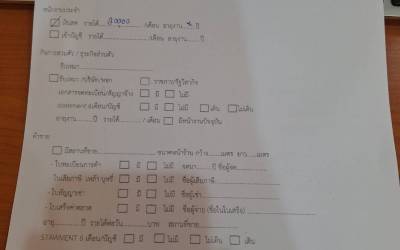 พนักงานประจำ
เงินสด รายได้ 30000 /เดือน อายุงาน ปี
เข้าบัญชี รายได้ /เดือน อายุงาน ปี
กิจการส่วนตัว / ธุรกิจส่วนตัว
รับเหมา
รับเหมา /บริษัท/หจก ราชการ/รัฐวิสาหกิจ
เอกสารจดทะเบียน/สัญญาจ้าง มี ไม่มี
statement 6เดือน/บัญชี มี ไม่มี เดิน ไม่เดิน
อายุงาน ปี รายได้ / เดือน มีหน้างานปัจจุบัน
ค้าขาย
มีสถานที่ขาย ขนาดหน้าร้าน กว้าง เมตร ยาว เมตร
- ใบทะเบียนการค้า มี ไม่มี จดมา ปี ชื่อผู้จด
ใบเสียภาษี เหล้า บุหรี่ มี ไม่มี ชื่อผู้เสียภาษี
- ใบสัญญาเช่า มี ไม่มี ชื่อผู้เช่า
- ใบเสร็จค่าตลาด มี ไม่มี ชื่อผู้จ่าย (ชื่อในใบเสร็จ)
อายุ ปี รายได้ต่อวัน บาท สถานที่ขาย
STAMMENT 6 เดือน/บัญชี มี ไม่มี ไม่เดิน เดิน